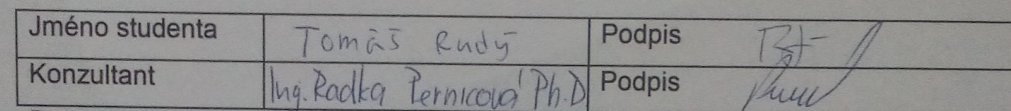 Jméno studenta Tomáš Rudý Podpis
Konzultant Ing. Radka Pernicová Ph.D Podpis